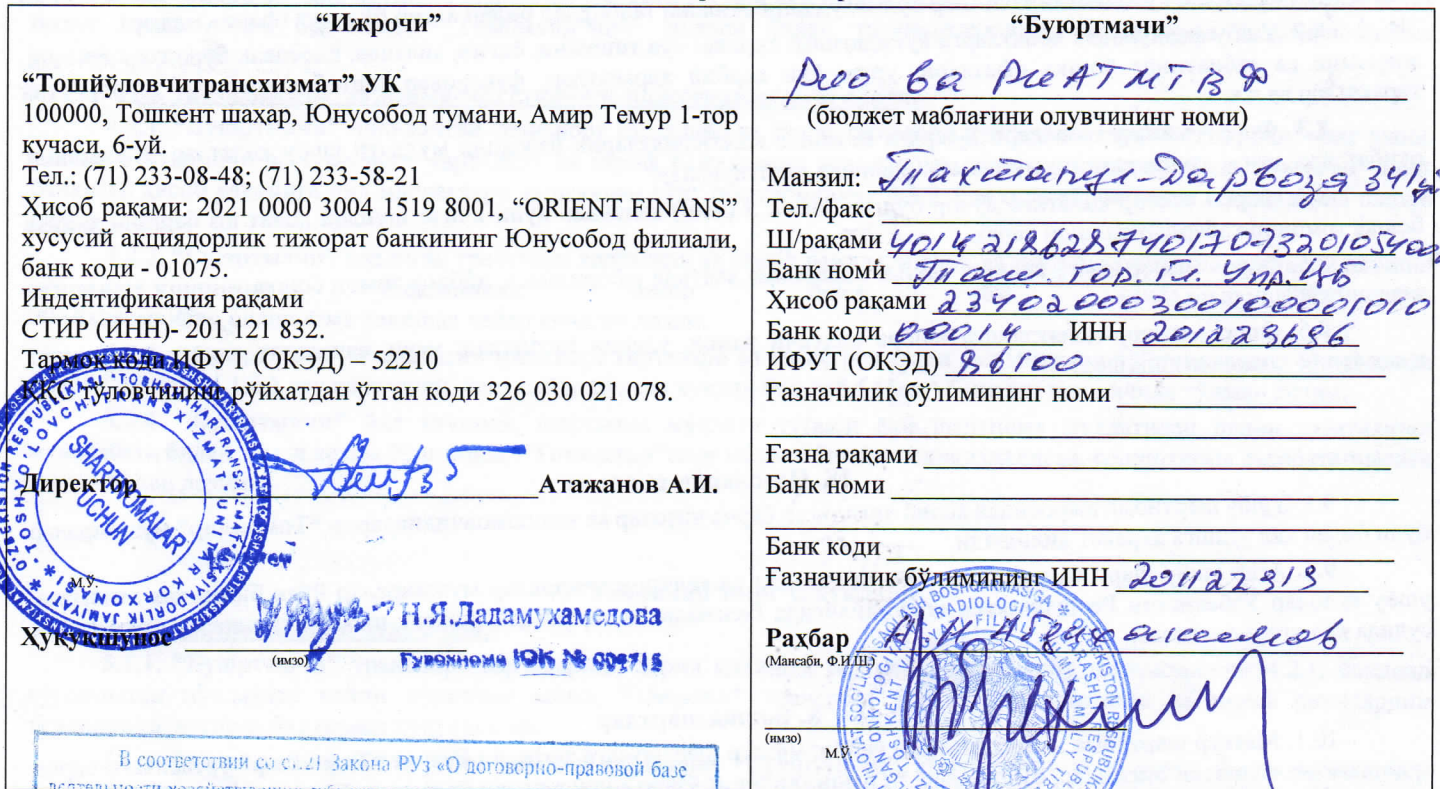 “Ижрочи”
“Тошйўловчитрансхизмат” УК
100000, Тошкент шаҳар, Юнусобод тумани, Амир Темур 1-тор
кучаси, 6-уй.
Тел.: (71) 233-08-48; (71) 233-58-21
Ҳисоб рақами: 2021 0000 3004 1519 8001, “ORIENT FINANS”
хусусий акциядорлик тижорат банкининг Юнусобод филиали,
банк коди - 01075.
Индентификация рақами
СТИР (ИНН)- 201 121 832.
Тармоқ коди ИФУТ (ОКЭД) – 52210
ҚҚС тўловчининг рўйхатдан ўтган коди 326 030 021 078.
SHARTNOMALAR
UCHUN
Директор Атажанов А.И.
М.Ў.
Ҳуқуқшунос Н.Я.Дадамухамедова
(имзо) Гувоҳнома ЮК №
В соответствии со ст. 21 Закона РУз «О договорно-правовой базе
“Буюртмачи”
РИО ва РИАТМТВФ
(бюджет маблағини олувчининг номи)
Манзил: Тахтапул-Дарвоза
Тел./факс
Ш/рақами
Банк номи Таш. гор. гл. Упр. ЦБ
Ҳисоб рақами 23402000300100001010
Банк коди 00014 ИНН 201123696
ИФУТ (ОКЭД) 86100
Ғазначилик бўлимининг номи
Ғазна рақами
Банк номи
Банк коди
Ғазначилик бўлимининг ИНН 201122919
Раҳбар
(Мансаби, Ф.И.Ш.)
(имзо)
М.Ў.